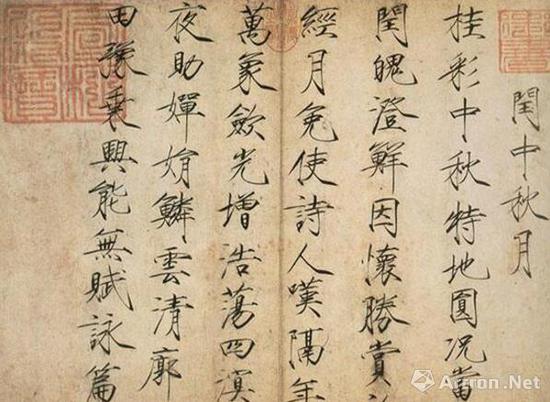 閏中秋月
桂彩中秋特地圓況當
閏魄澄鮮因懷勝賞
經月免使詩人嘆隔年
萬象歛光增浩蕩四溟
夜助嬋娟鱗雲清廓
田豫乘興能無賦詠篇
Artron.Net